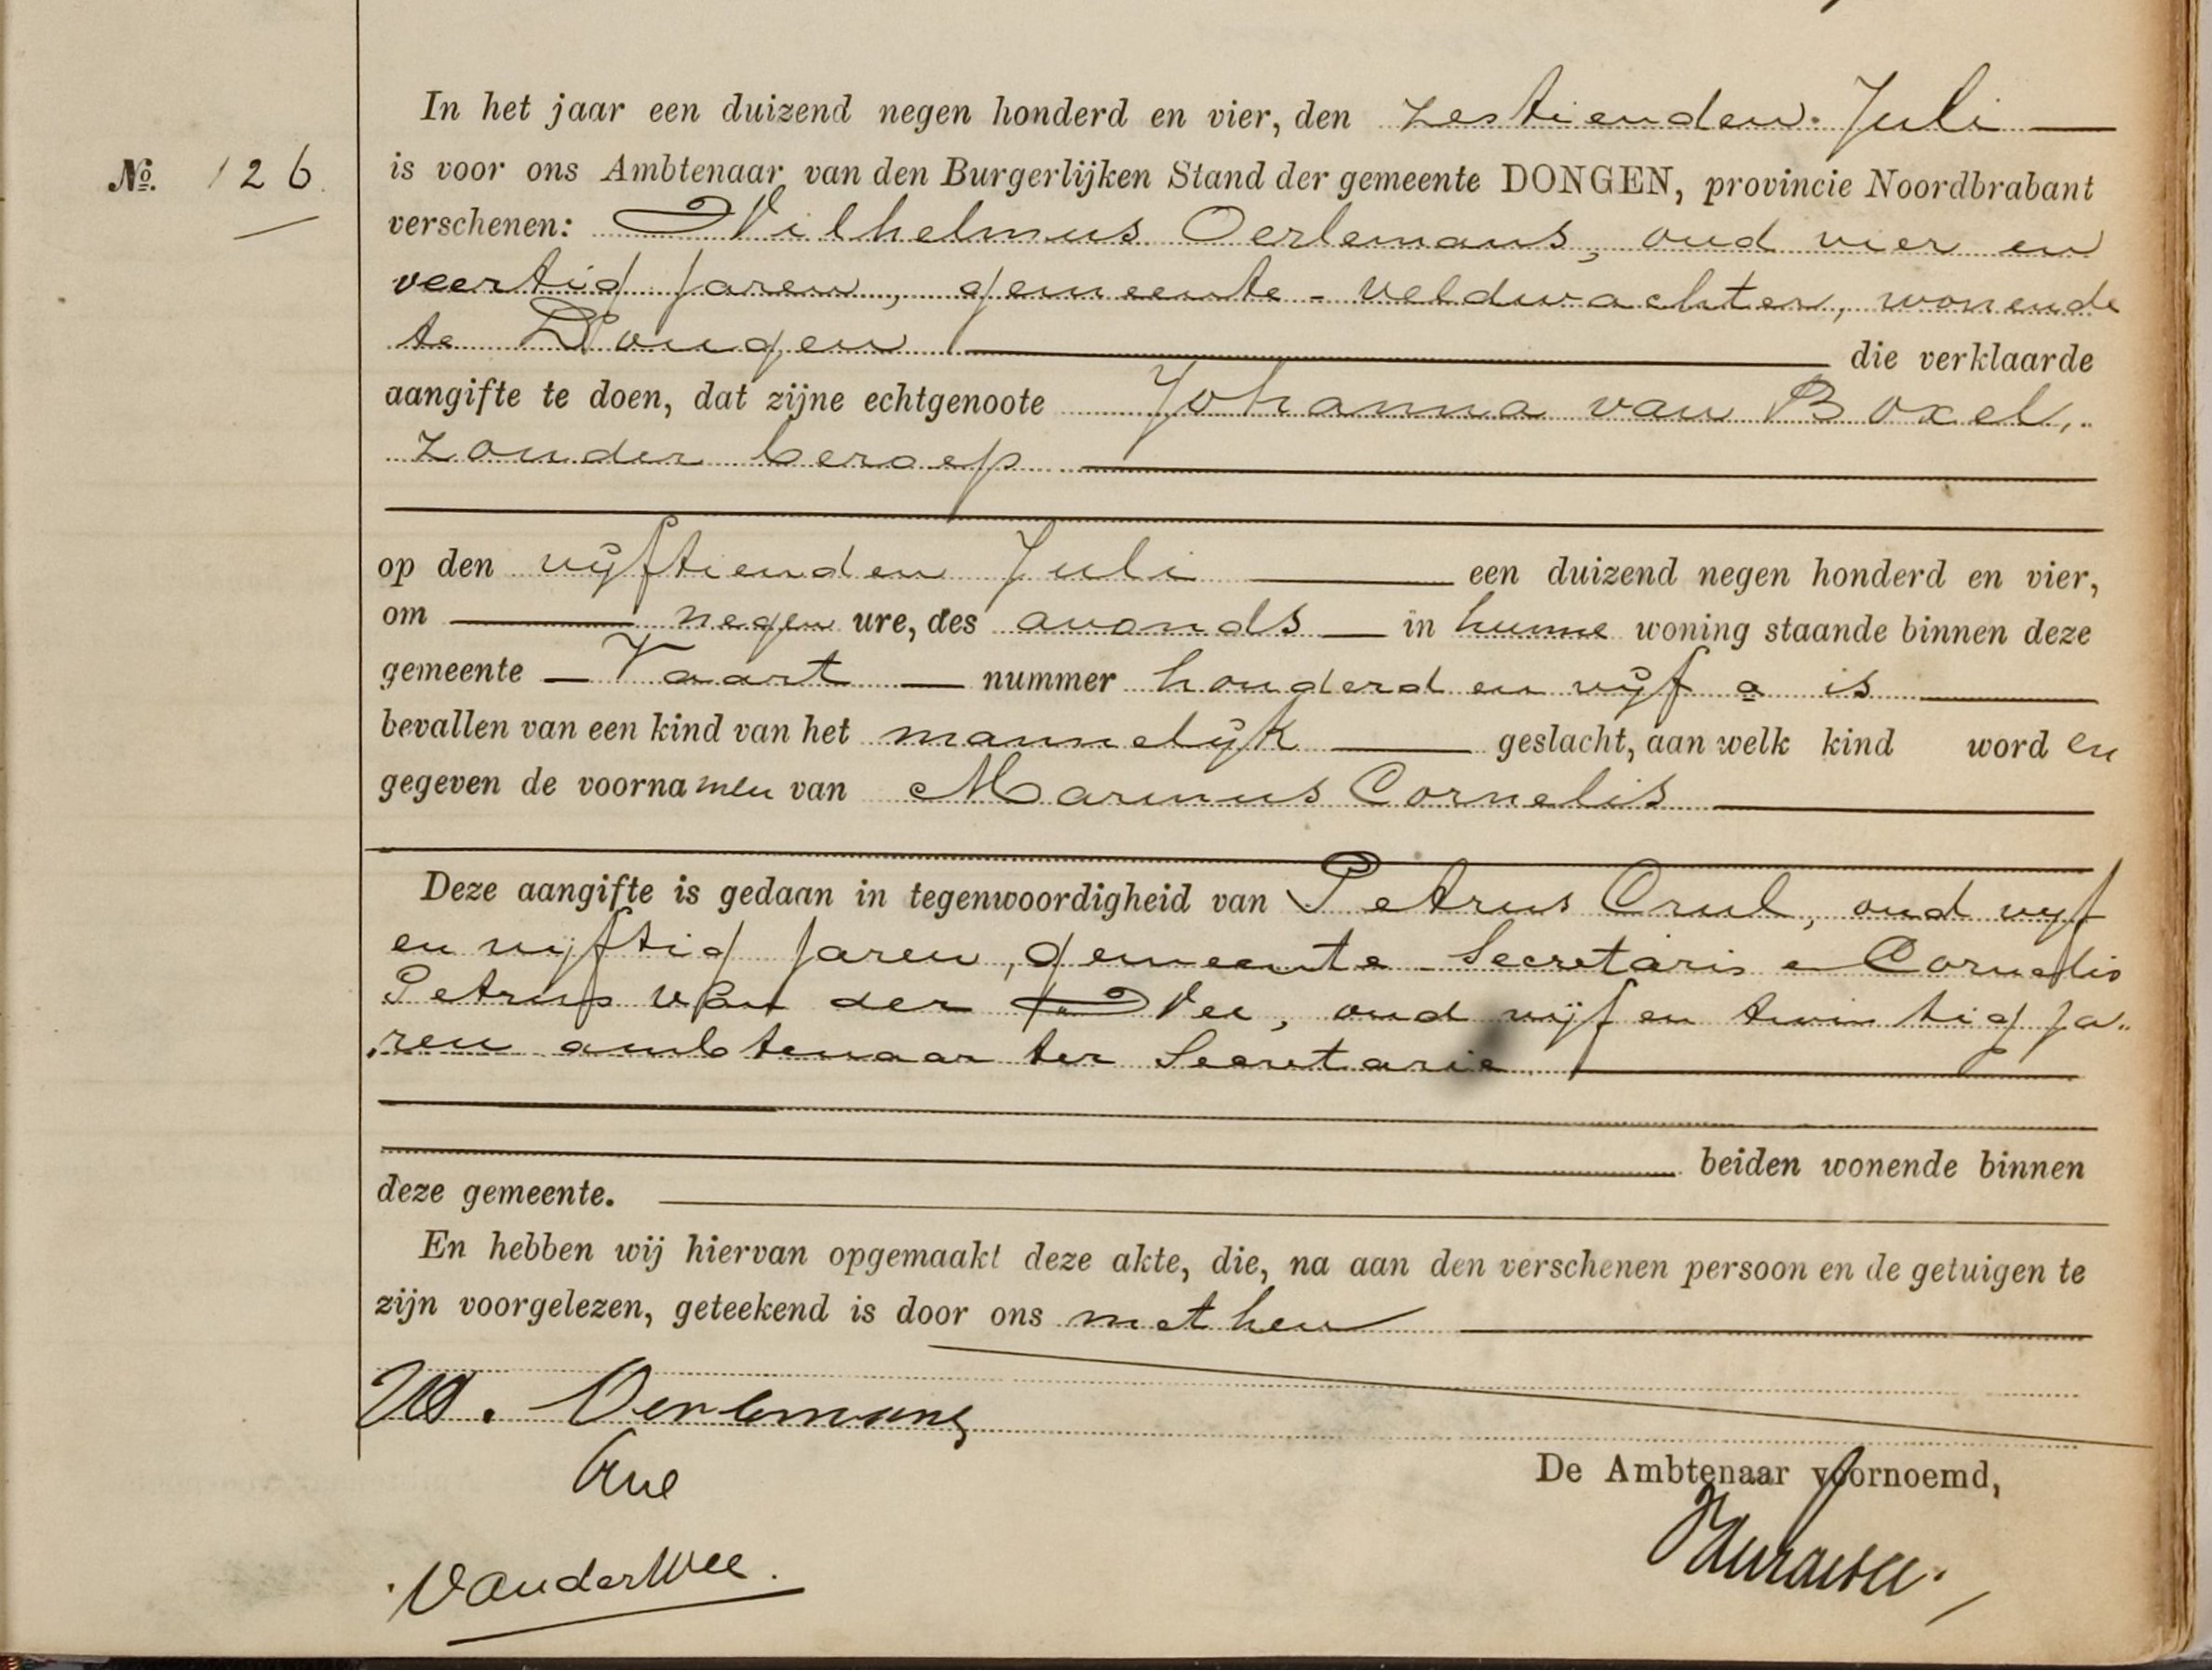 In het jaar een duizend negen honderd en vier, den zestienden Juli
No. 126
is voor ons Ambtenaar van den Burgerlijken Stand der gemeente DONGEN, provincie Noordbrabant
verschenen: Wilhelmus Oerlemans, oud vier en
veertig jaren, gemeente-veldwachter, wonende
te Dongen die verklaarde
aangifte te doen, dat zijne echtgenoote Johanna van Boxel,
zonder beroep
op den vijftienden Juli een duizend negen honderd en vier,
om negen ure, des avonds in hunne woning staande binnen deze
gemeente Vaart nummer honderd en vijf a is
bevallen van een kind van het mannelijk geslacht, aan welk kind worden
gegeven de voornamen van Marinus Cornelis
Deze aangifte is gedaan in tegenwoordigheid van Petrus Crul, oud vijf
en vijftig jaren, gemeente Secretaris e Cornelis
Petrus van der Wee, oud vijf en twintig ja„
ren ambtenaar ter Secretarie
beiden wonende binnen
deze gemeente.
En hebben wij hiervan opgemaakt deze akte, die, na aan den verschenen persoon en de getuigen te
zijn voorgelezen, geteekend is door ons met hen
W. Oerlemans
Crul
De Ambtenaar voornoemd,
VanderWee.